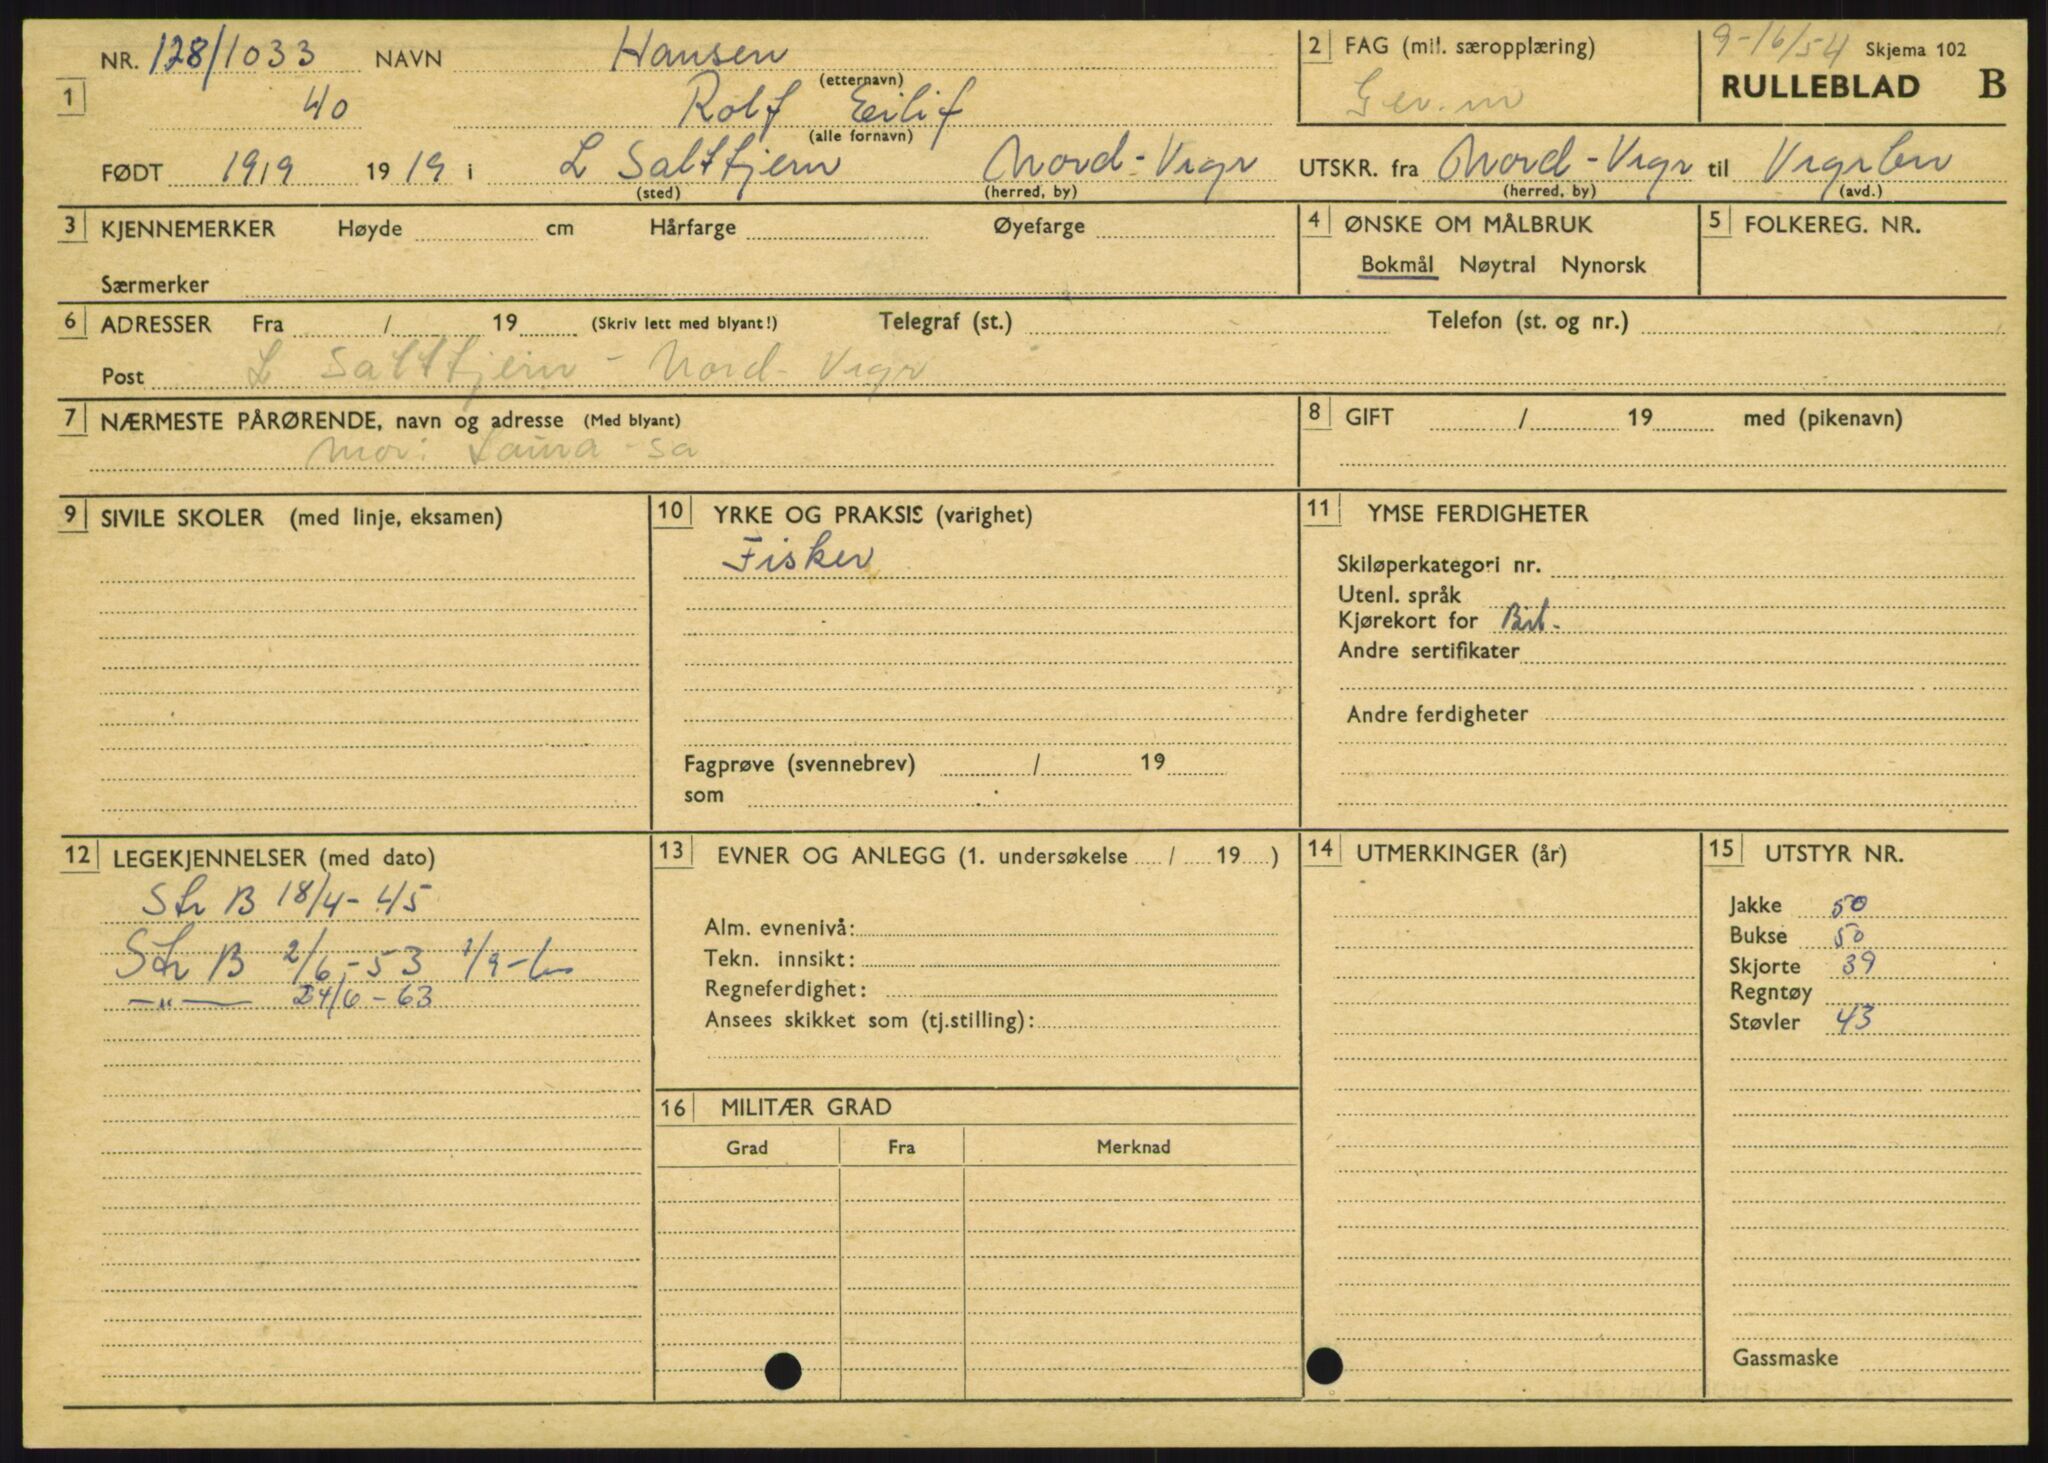 NR. 128/1033 NAVN Hansen (etternavn)
1 40 Rolf Eilif (alle fornavn)
FØDT 19/9 1919 i L Salttjern (sted) Nord-Vrgr (herred, by)
2 FAG (mil. særopplæring)
Gev.m
9-16/54 Skjema 102
RULLEBLAD B
UTSKR. fra Nord-Vrgr (herred, by) til (avd.)
3 KJENNEMERKER Høyde cm Hårfarge Øyefarge
Særmerker
4 ØNSKE OM MÅLBRUK
Bokmål Nøytral Nynorsk
5 FOLKEREG. NR.
6 ADRESSER Fra / 19 (Skriv lett med blyant!) Telegraf (st.) Telefon (st. og nr.)
Post L Salttjern - Nord-Vrgr
7 NÆRMESTE PÅRØRENDE, navn og adresse (Med blyant)
Mor: Laura - sa
8 GIFT / 19 med (pikenavn)
9 SIVILE SKOLER (med linje, eksamen)
10 YRKE OG PRAKSIS (varighet)
Fisker
Fagprøve (svennebrev) / 19
som
11 YMSE FERDIGHETER
Skiløperkategori nr.
Utenl. språk
Kjørekort for Bil.
Andre sertifikater
Andre ferdigheter
12 LEGEKJENNELSER (med dato)
Str B 18/4-45
Str B 2/6-53
—"— 24/6-63
13 EVNER OG ANLEGG (1. undersøkelse / 19 )
Alm. evnenivå:
Tekn. innsikt:
Regneferdighet:
Ansees skikket som (tj.stilling):
14 UTMERKINGER (år)
15 UTSTYR NR.
Jakke 50
Bukse 50
Skjorte 39
Regntøy
Støvler 43
Gassmaske
16 MILITÆR GRAD
Grad Fra Merknad